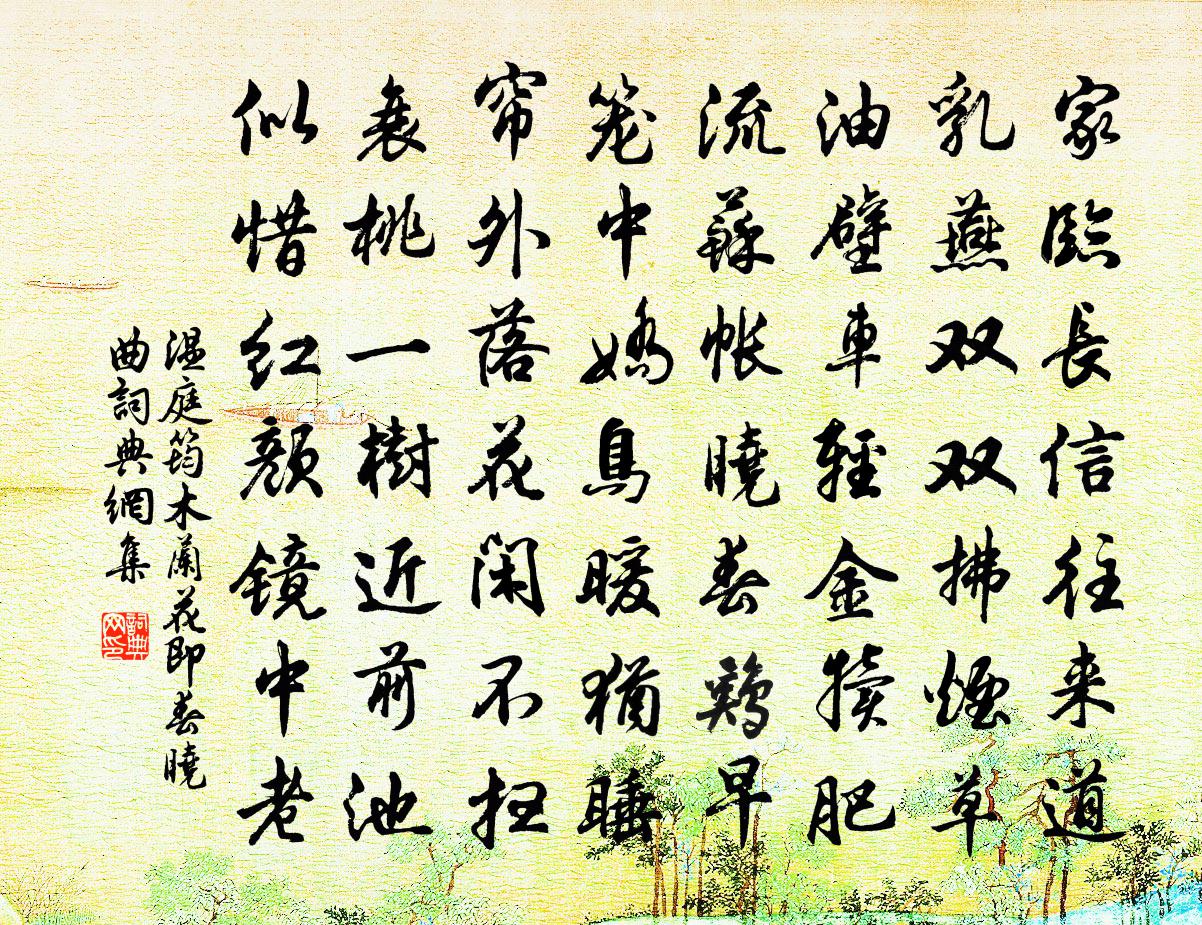 家臨長信往来道
乳燕双双拂煙草
油壁車輕金犢肥
流蘇帳曉春鷄早
笼中嬌鳥暖猶睡
帘外落花閑不扫
衰桃一樹近前池
似惜红顏镜中老
温庭筠木蘭花即春曉
曲詞典網集
詞典
网印